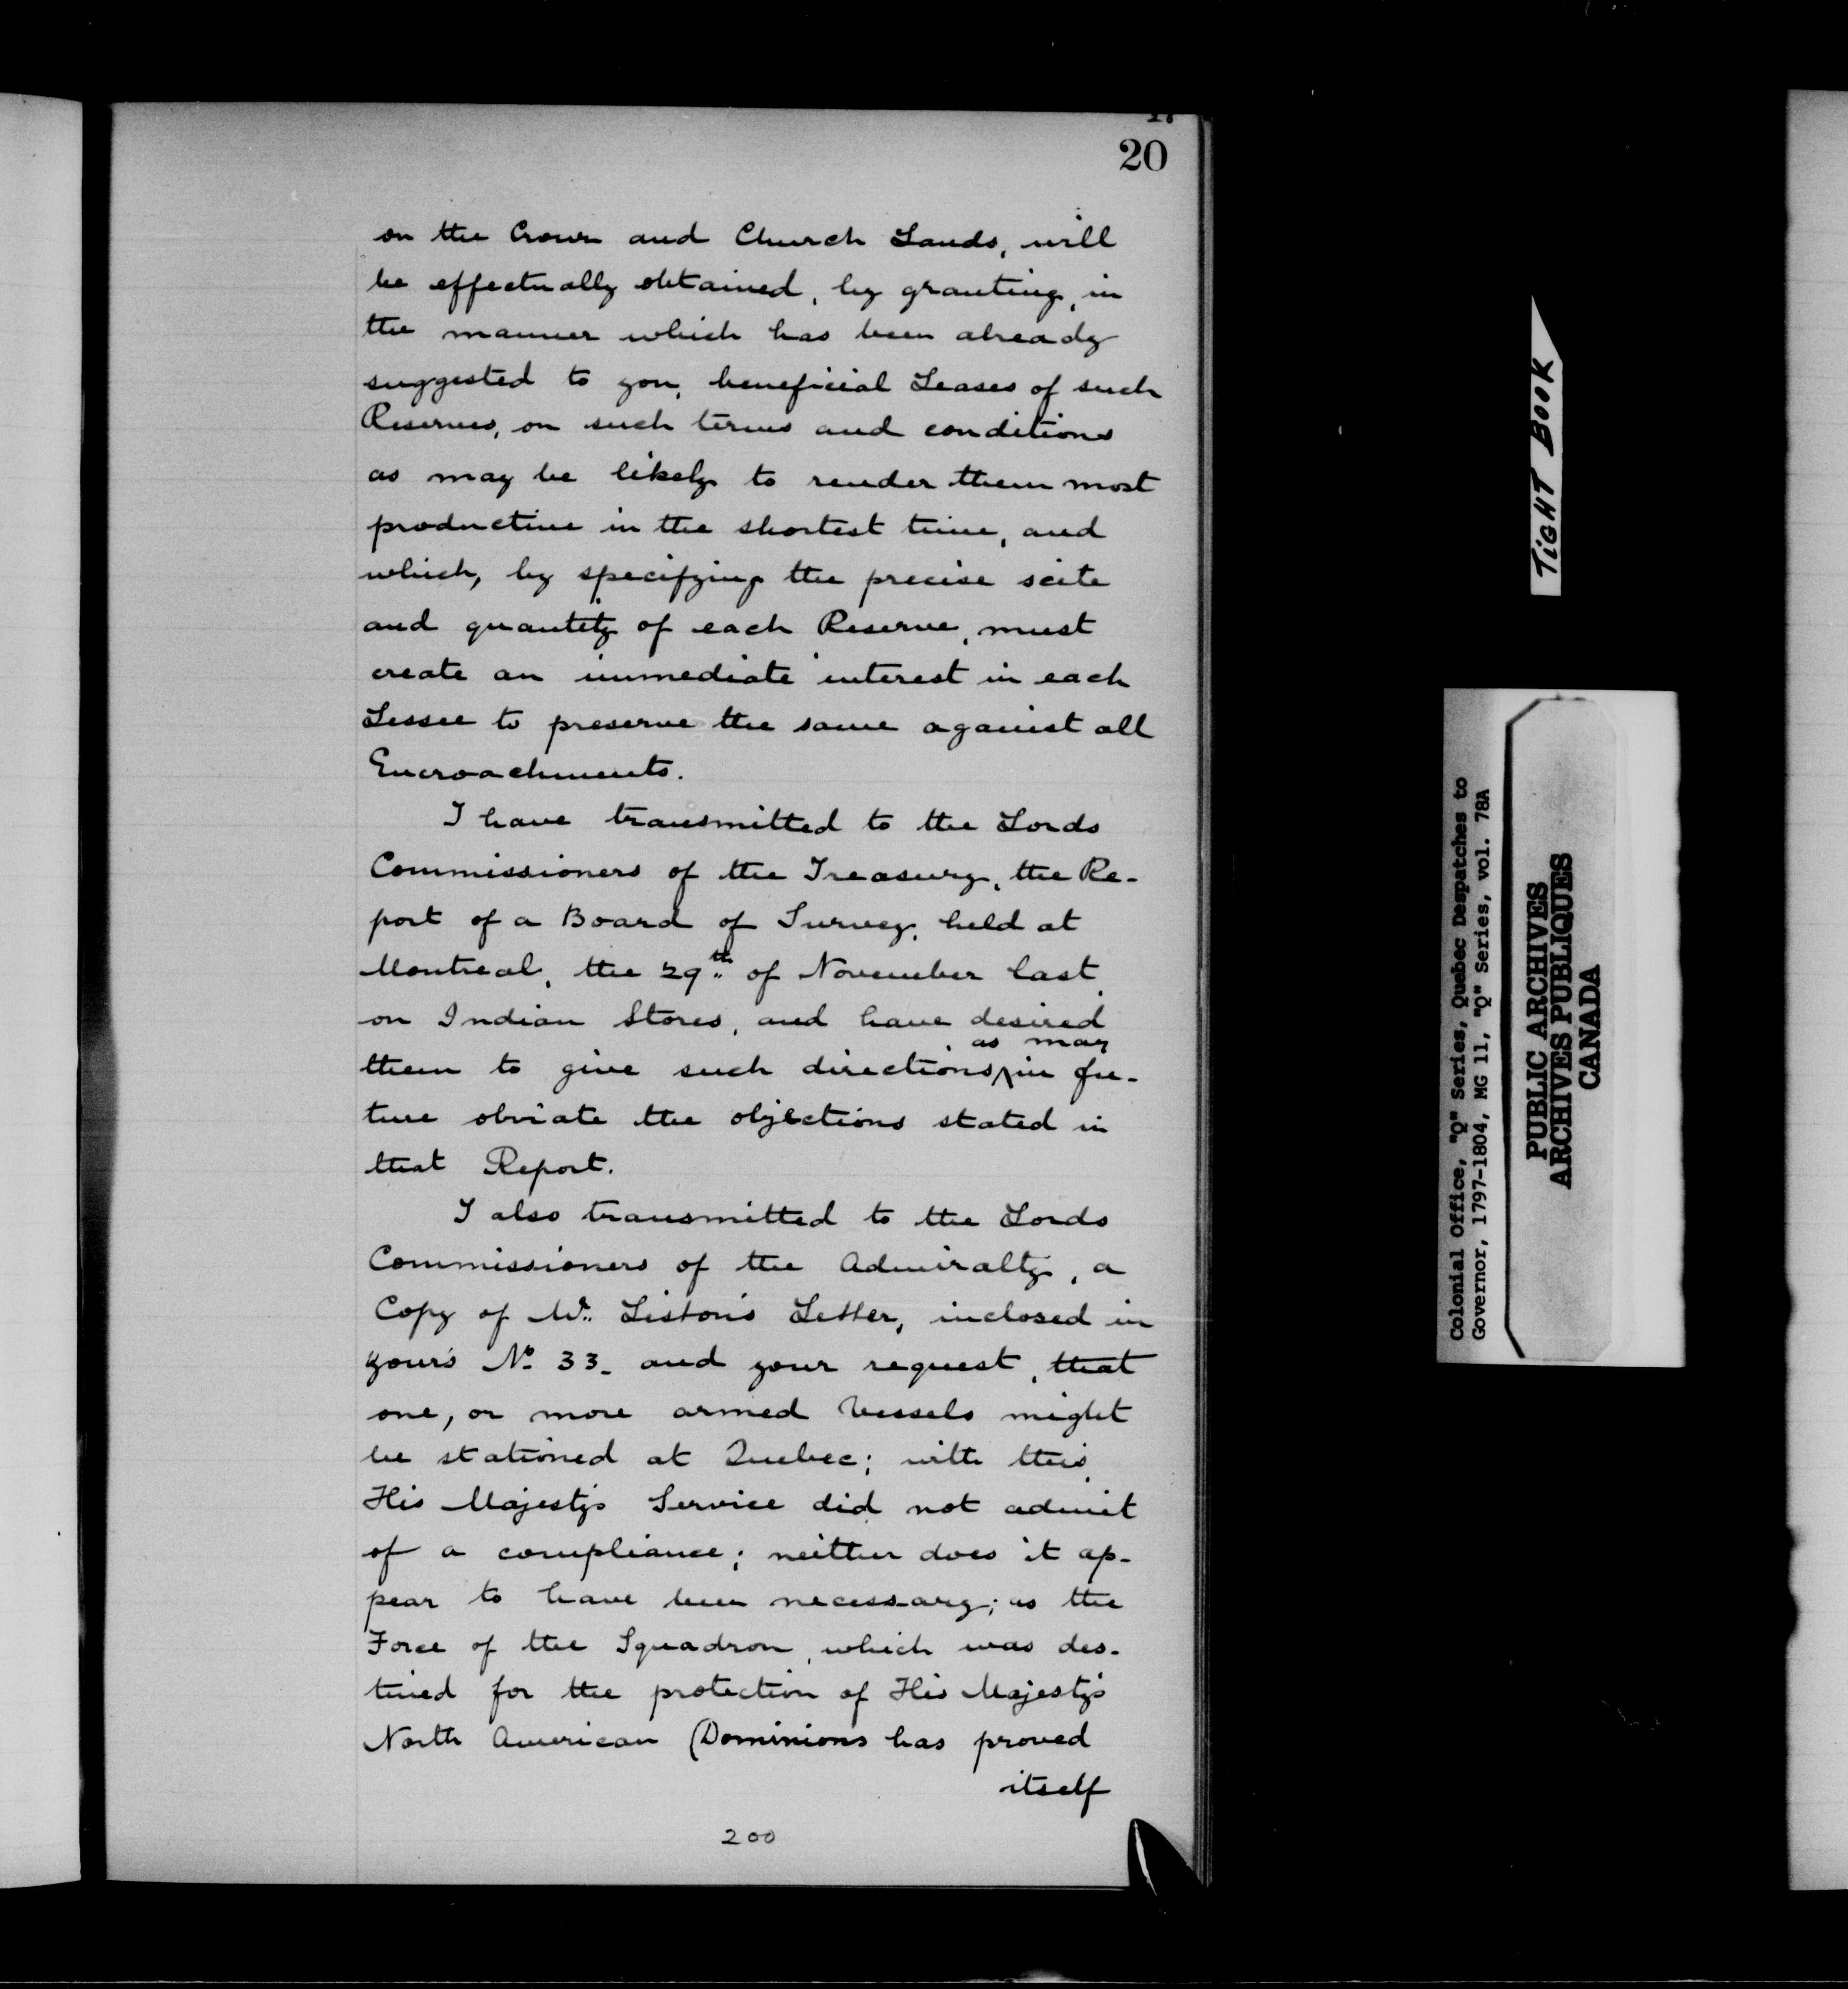 20
on the Crown and Church Lands, will
be effectually obtained, by granting, in
the manner which has been already
suggested to you, beneficial Leases of such
Reserves, on such terms and conditions
as may be likely to render them most
productive in the shortest time, and
which, by specifying the precise scite
and quantity of each Reserve, must
create an immediate interest in each
Lessee to preserve the same against all
Encroachments.
I have transmitted to the Lords
Commissioners of the Treasury, the Re-
port of a Board of Survey, held at
Montreal, the 29th of November last,
on Indian Stores, and have desired
as may
them to give such directions ^ in fu-
ture obviate the objections stated in
that Report.
I also transmitted to the Lords
Commissioners of the Admiralty, a
Copy of Mr. Liston's Letter, inclosed in
your's No. 33. and your request, that
one, or more armed Vessels might
be stationed at Quebec; with this,
His Majesty's Service did not admit
of a compliance; neither does it ap-
pear to have been necessary; as the
Force of the Squadron, which was des-
tined for the protection of His Majesty's
North American Dominions has proved
itself
200
TIGHT BOOK
Colonial Office, "Q" Series, Quebec Despatches to
Governor, 1797-1804, MG 11, "Q" Series, vol. 78A
PUBLIC ARCHIVES
ARCHIVES PUBLIQUES
CANADA